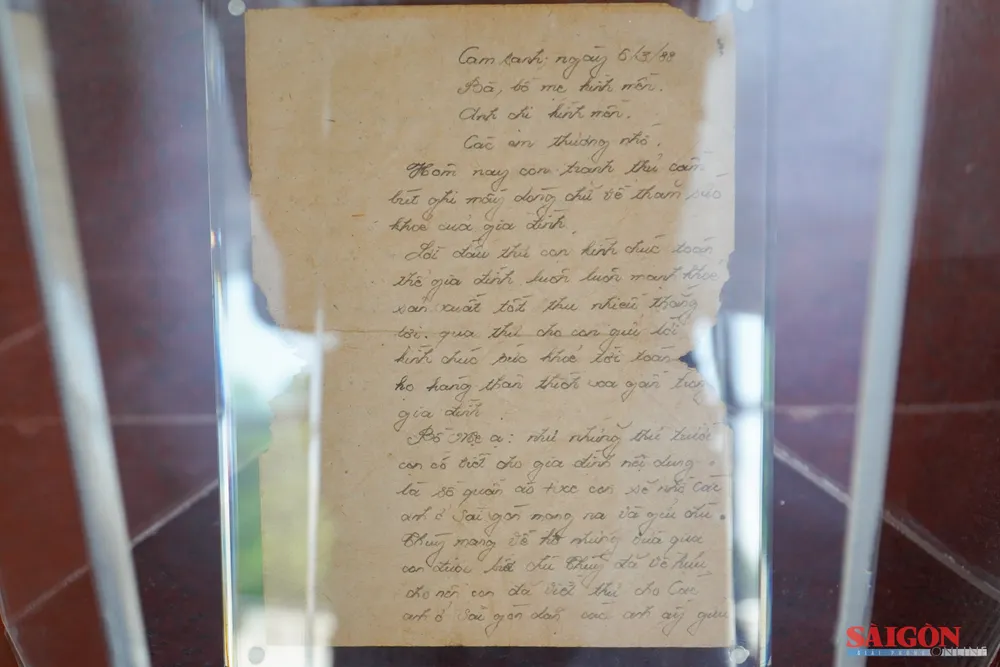 Cam Ranh; ngày 6/3/88
Bà, bố mẹ kính mến.
Anh chị kính mến.
Các em thương nhớ.
Hôm nay con tranh thủ cầm
bút ghi mấy dòng chữ về thăm sức
khoẻ của gia đình.
Lời đầu thư con kính chúc toàn
thể gia đình luôn luôn mạnh khoẻ
sản xuất tốt thu nhiều thắng
lợi. qua thư cho con gửi lời
kính chúc sức khoẻ tới toàn
họ hàng thân thích xa gần trong
gia đình.
Bố Mẹ ạ: như những thư trước
con có viết cho gia đình nội dung
là số quần áo con sẽ nhờ các
anh ở Sài gòn mang ra và gửi chú
Thuỷ mang về hộ nhưng vừa qua
con được biết chú Thuỷ đã về hưu
cho nên con đã viết thư cho các
anh ở Sài gòn dặn các anh ấy gửi
SÀI GÒN
GIẢI PHÓNG ONLINE